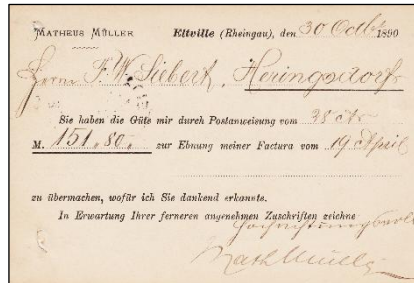 MATHEUS MÜLLER Eltville (Rheingau), den 30 Octbr 1890
Herrn F. W. Siebert, Heringsdorf
Sie haben die Güte mir durch Postanweisung vom 28 ctr
M. 151.80 zur Ebnung meiner Factura vom 19 April
zu übermachen, wofür ich Sie dankend erkannte.
In Erwartung Ihrer ferneren angenehmen Zuschriften zeichne
Hochachtungsvoll
Math Müller